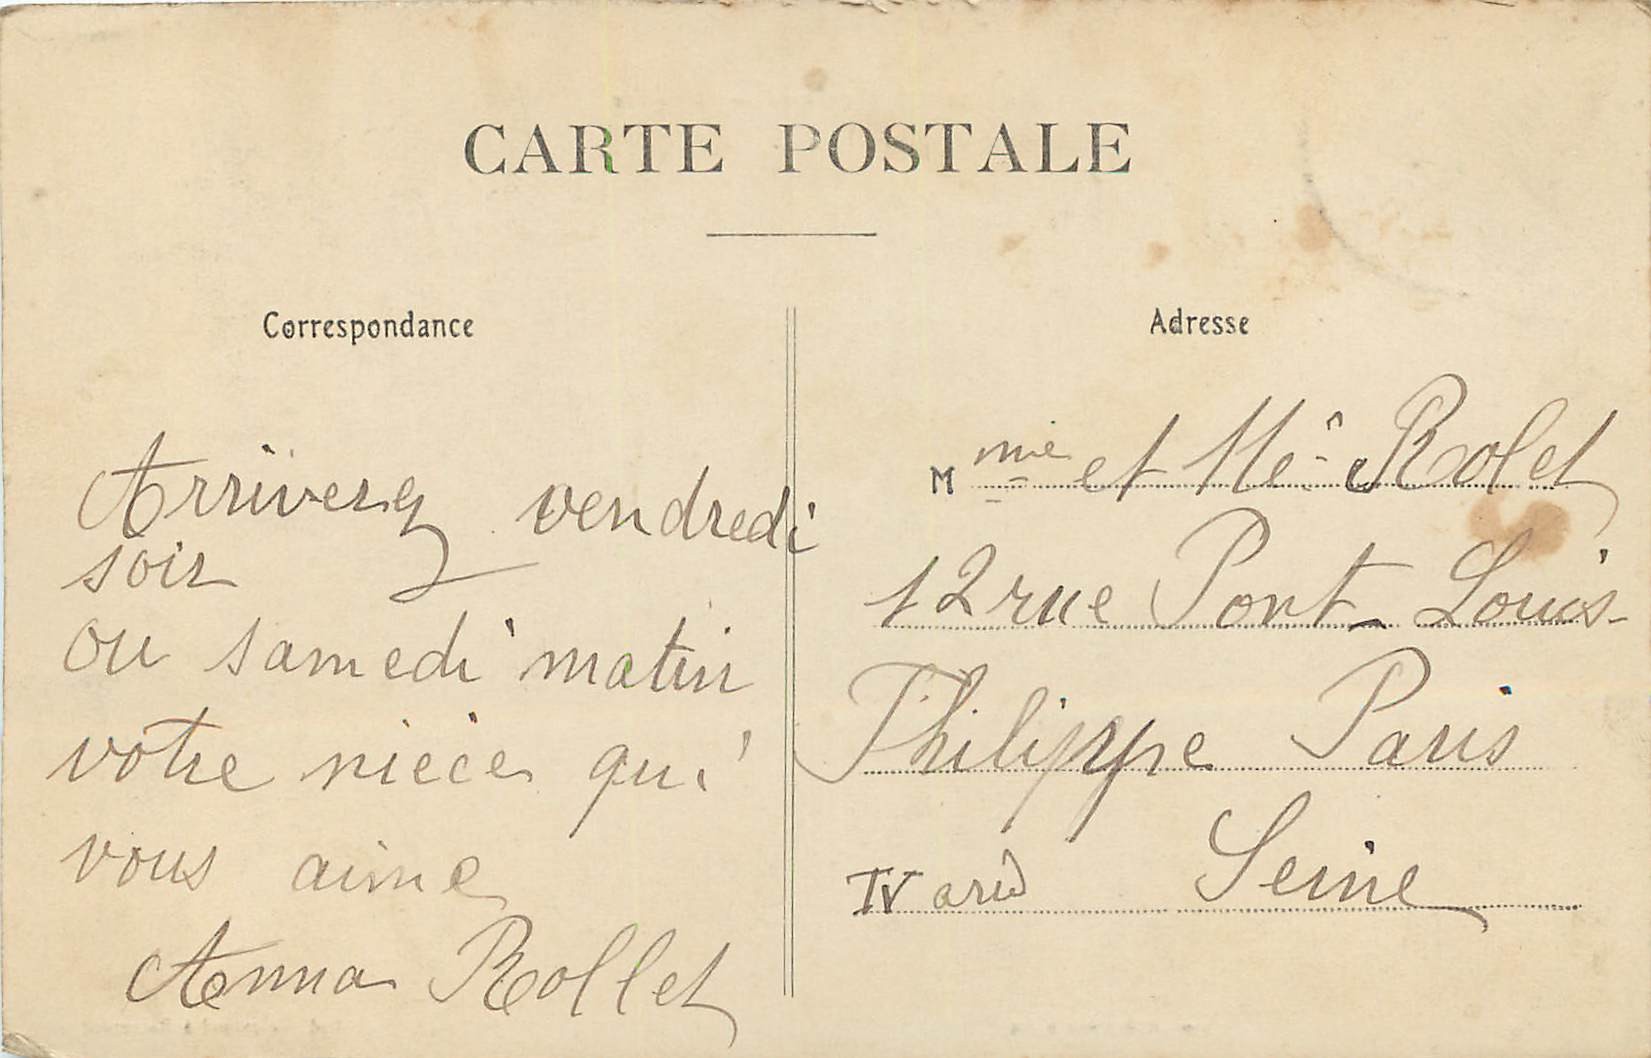 CARTE POSTALE
Correspondance
Arriverez vendredi
soir
ou samedi matin
votre nièce qui
vous aime
Anna Rollet
Adresse
Mme et Mr Rolet
12 rue Pont-Louis-
Philippe Paris
IV arrd Seine